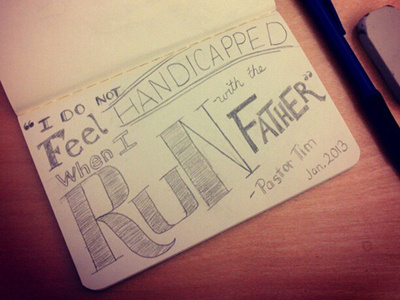 "I DO NOT
Feel HANDICAPPED
When I
RuN with the
FATHER"
-Pastor Tim
Jan. 2013